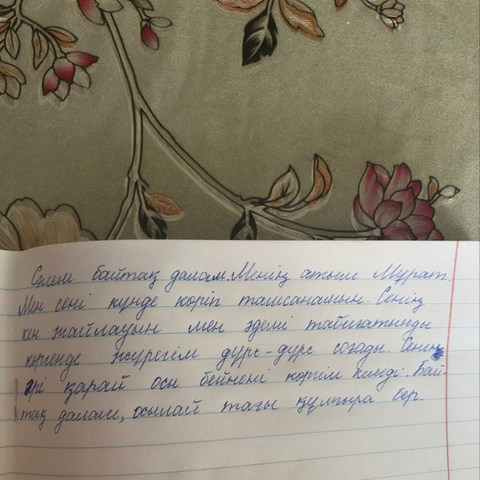 Сәлем байтақ далам. Менің атым Мұрат.
Мен сені күнде көріп тамсанамын. Сенің
кең жайлауың мен әдемі табиғатыңды
көргенде жүрегім дүрс-дүрс соғады. Сенің
әрі қарай осы бейнең көркем
Бай-
тақ далам, осылай тағы құлпыра бер.